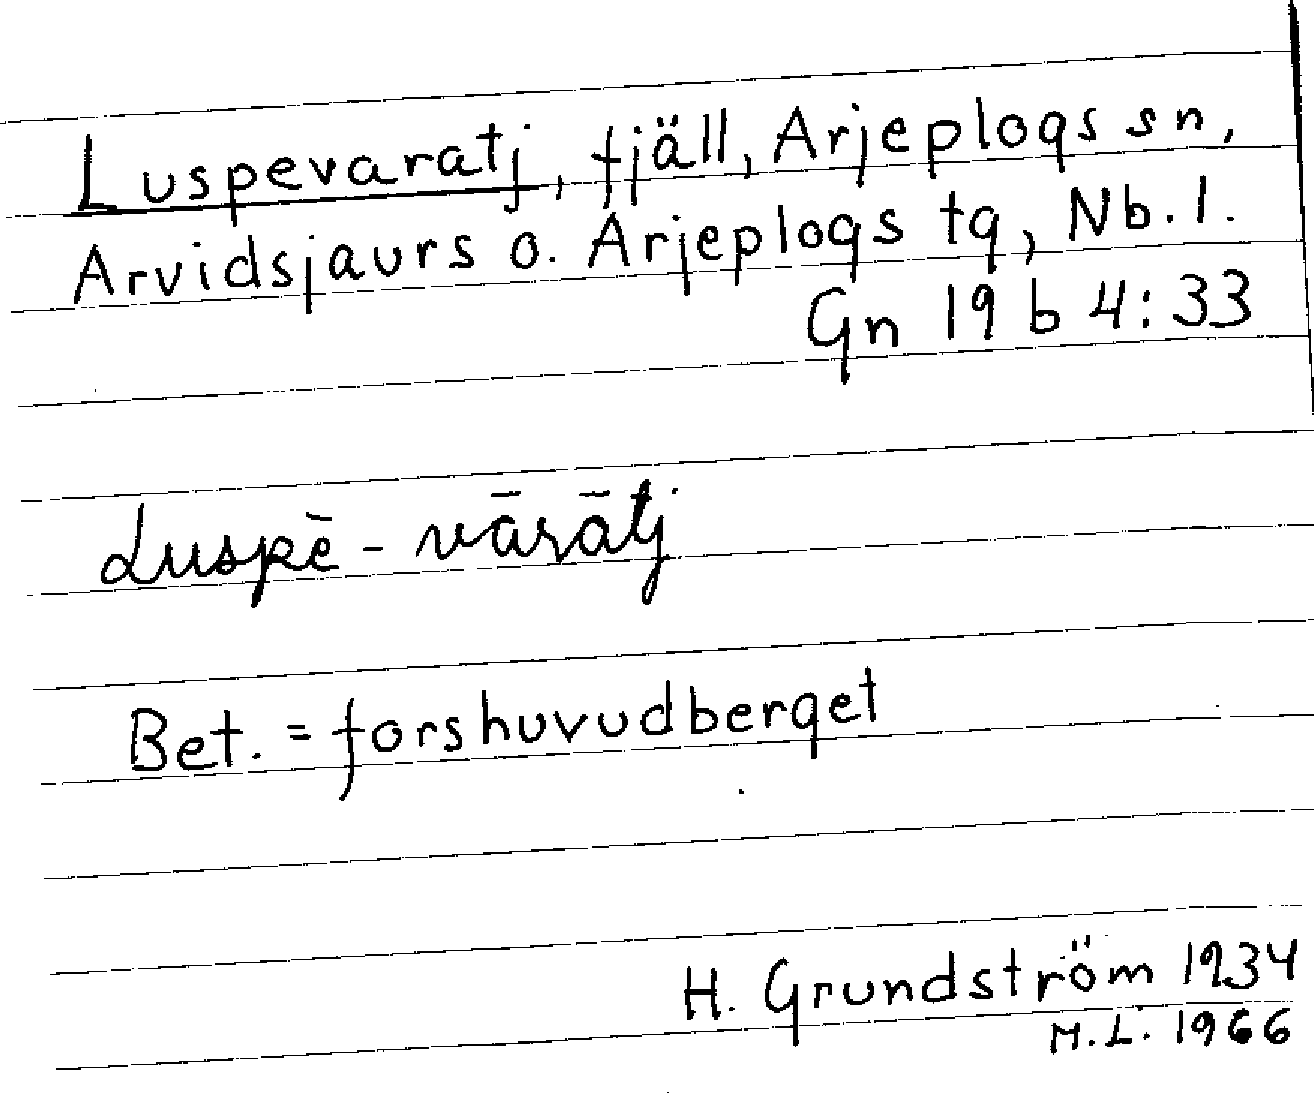 Luspevaratj, fjäll, Arjeplogs sn,
Arvidsjaurs o. Arjeplogs tg, Nb. l.
Gn 19 b 4:33
Luspē - vārātj
Bet. = forshuvudberget
H. Grundström 1934
M.L. 1966